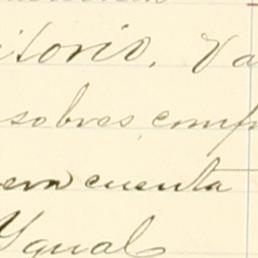 itorio, Va
sobres, comp
en cuenta
Ygual